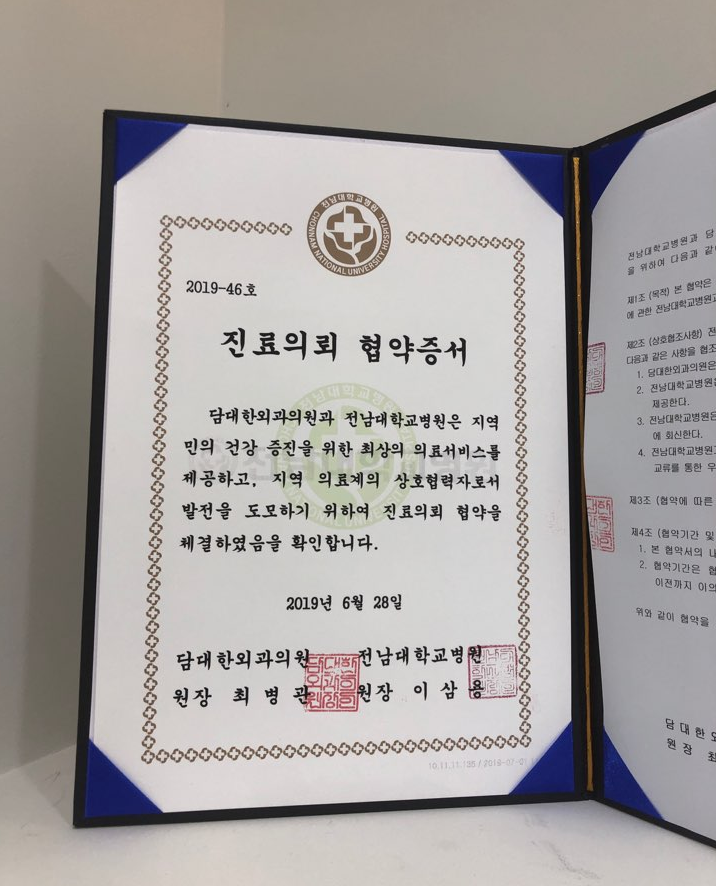 전남대학교병원
CHONNAM NATIONAL UNIVERSITY HOSPITAL
2019-46호
진료의뢰 협약증서
담대한외과의원과 전남대학교병원은 지역
민의 건강 증진을 위한 최상의 의료서비스를
제공하고, 지역 의료계의 상호협력자로서
발전을 도모하기 위하여 진료의뢰 협약을
체결하였음을 확인합니다.
2019년 6월 28일
담대한외과의원 전남대학교병원
원장 최병관 원장 이삼용
10.11.11.135 / 2019-07-01
전남대학교병원과 담
을 위하여 다음과 같이
제1조 (목적) 본 협약은
에 관한 전남대학교병원과
제2조 (상호협조사항) 전
다음과 같은 사항을 협조
1. 담대한외과의원은
2. 전남대학교병원은
제공한다.
3. 전남대학교병원은
에 회신한다.
4. 전남대학교병원과
교류를 통한 우
제3조 (협약에 따른
제4조 (협약기간 및
1. 본 협약서의 내
2. 협약기간은 협
이전까지 이의
위와 같이 협약을
담대한외
원장 최